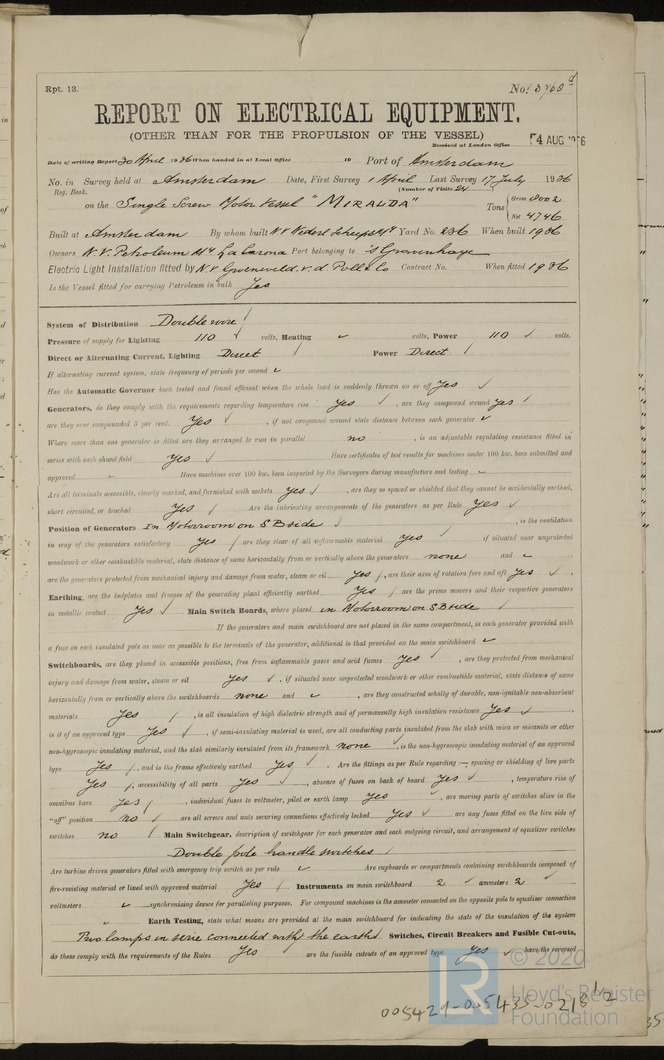 Rpt. 13.
No. 3760 d
REPORT ON ELECTRICAL EQUIPMENT.
(OTHER THAN FOR THE PROPULSION OF THE VESSEL)
Received at London Office
4 AUG
Date of writing Report 30 April 1936 When handed in at Local Office 19 Port of Amsterdam
No. in Survey held at Amsterdam Date, First Survey 1 April Last Survey 17 July 1936
Reg. Book. (Number of Visits 24)
on the Single Screw Motor Vessel "MIRALDA" Tons { Gross 8002
Net 4746
Built at Amsterdam By whom built N.V. Nederl. Scheepsb. Mij Yard No. 236 When built 1936
Owners N.V. Petroleum Mij La Carona Port belonging to 's Gravenhage
Electric Light Installation fitted by N.V. Groeneveld. v. d. Poll & Co Contract No. When fitted 1936
Is the Vessel fitted for carrying Petroleum in bulk Yes
System of Distribution Double wire
Pressure of supply for Lighting 110 volts, Heating volts, Power 110 volts.
Direct or Alternating Current, Lighting Direct Power Direct
If alternating current system, state frequency of periods per second
Has the Automatic Governor been tested and found efficient when the whole load is suddenly thrown on or off Yes
Generators, do they comply with the requirements regarding temperature rise Yes, are they compound wound Yes
are they over compounded 5 per cent. Yes, if not compound wound state distance between each generator
Where more than one generator is fitted are they arranged to run in parallel no, is an adjustable regulating resistance fitted in
series with each shunt field Yes Have certificates of test results for machines under 100 kw. been submitted and
approved Have machines over 100 kw. been inspected by the Surveyors during manufacture and testing
Are all terminals accessible, clearly marked, and furnished with sockets Yes, are they so spaced or shielded that they cannot be accidentally earthed,
short circuited, or touched Yes Are the lubricating arrangements of the generators as per Rule Yes
Position of Generators In Motorroom on SB side, is the ventilation
in way of the generators satisfactory Yes are they clear of all inflammable material Yes if situated near unprotected
woodwork or other combustible material, state distance of same horizontally from or vertically above the generators none and
are the generators protected from mechanical injury and damage from water, steam or oil Yes, are their axes of rotation fore and aft Yes
Earthing, are the bedplates and frames of the generating plant efficiently earthed Yes are the prime movers and their respective generators
in metallic contact Yes Main Switch Boards, where placed in Motorroom on SB side
If the generators and main switchboard are not placed in the same compartment, is each generator provided with
a fuse on each insulated pole as near as possible to the terminals of the generator, additional to that provided on the main switchboard
Switchboards, are they placed in accessible positions, free from inflammable gases and acid fumes Yes, are they protected from mechanical
injury and damage from water, steam or oil Yes, if situated near unprotected woodwork or other combustible material, state distance of same
horizontally from or vertically above the switchboards none and, are they constructed wholly of durable, non-ignitable non-absorbent
materials Yes, is all insulation of high dielectric strength and of permanently high insulation resistance Yes
is it of an approved type Yes, if semi-insulating material is used, are all conducting parts insulated from the slab with mica or micanite or other
non-hygroscopic insulating material, and the slab similarly insulated from its framework none, is the non-hygroscopic insulating material of an approved
type Yes, and is the frame effectively earthed Yes. Are the fittings as per Rule regarding :— spacing or shielding of live parts
Yes, accessibility of all parts Yes, absence of fuses on back of board Yes, temperature rise of
omnibus bars Yes, individual fuses to voltmeter, pilot or earth lamp Yes, are moving parts of switches alive in the
"off" position no are all screws and nuts securing connections effectively locked Yes are any fuses fitted on the live side of
switches no Main Switchgear, description of switchgear for each generator and each outgoing circuit, and arrangement of equalizer switches
Double pole handle switches
Are turbine driven generators fitted with emergency trip switch as per rule Are cupboards or compartments containing switchboards composed of
fire-resisting material or lined with approved material Yes Instruments on main switchboard 2 ammeters 2
voltmeters synchronising device for paralleling purposes. For compound machines is the ammeter connected on the opposite pole to equaliser connection
Earth Testing, state what means are provided at the main switchboard for indicating the state of the insulation of the system
Two lamps in serie connected with the earth. Switches, Circuit Breakers and Fusible Cut-outs,
do these comply with the requirements of the Rules Yes are the fusible cutouts of an approved type Yes have the reversed
© 2020
LR
Lloyd's Register
Foundation
005421-005435-0218 1/2